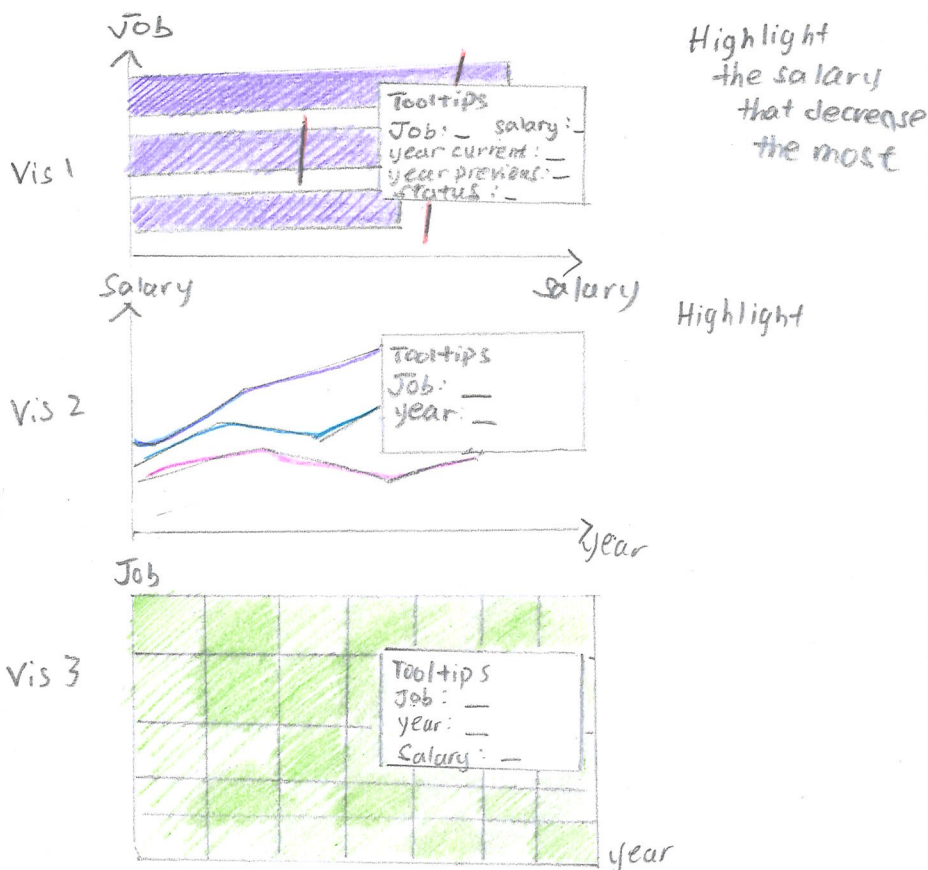 Job
Highlight
the salary
that decrease
the most
Vis 1
Tooltips
Job: _ salary: _
year current: _
year previous: _
status: _
Salary
salary
Highlight
Vis 2
Tooltips
Job: _
year: _
year
Job
Vis 3
Tooltips
Job: _
year: _
Salary: _
year